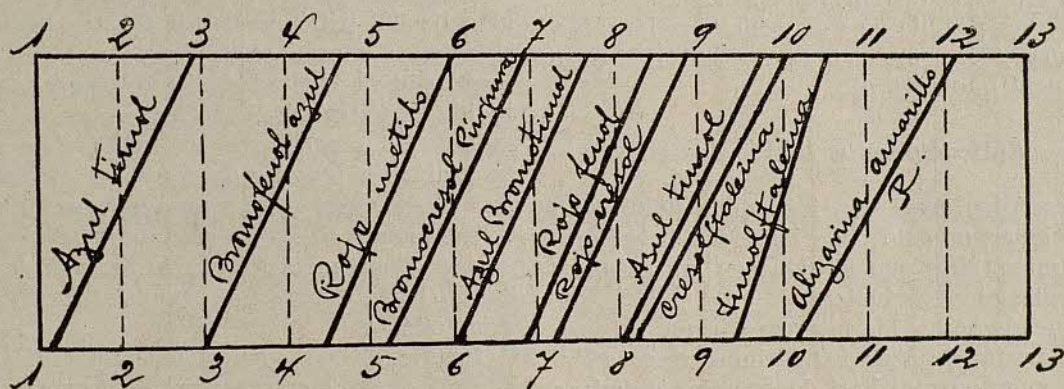 1 2 3 4 5 6 7 8 9 10 11 12 13
Azul timol
Bromofenol azul
Rojo metilo
Bromocresol Púrpura
Azul Bromotimol
Rojo fenol
Rojo cresol
Azul timol
Cresolftaleina
Timolftaleina
Alizarina amarillo
R
1 2 3 4 5 6 7 8 9 10 11 12 13